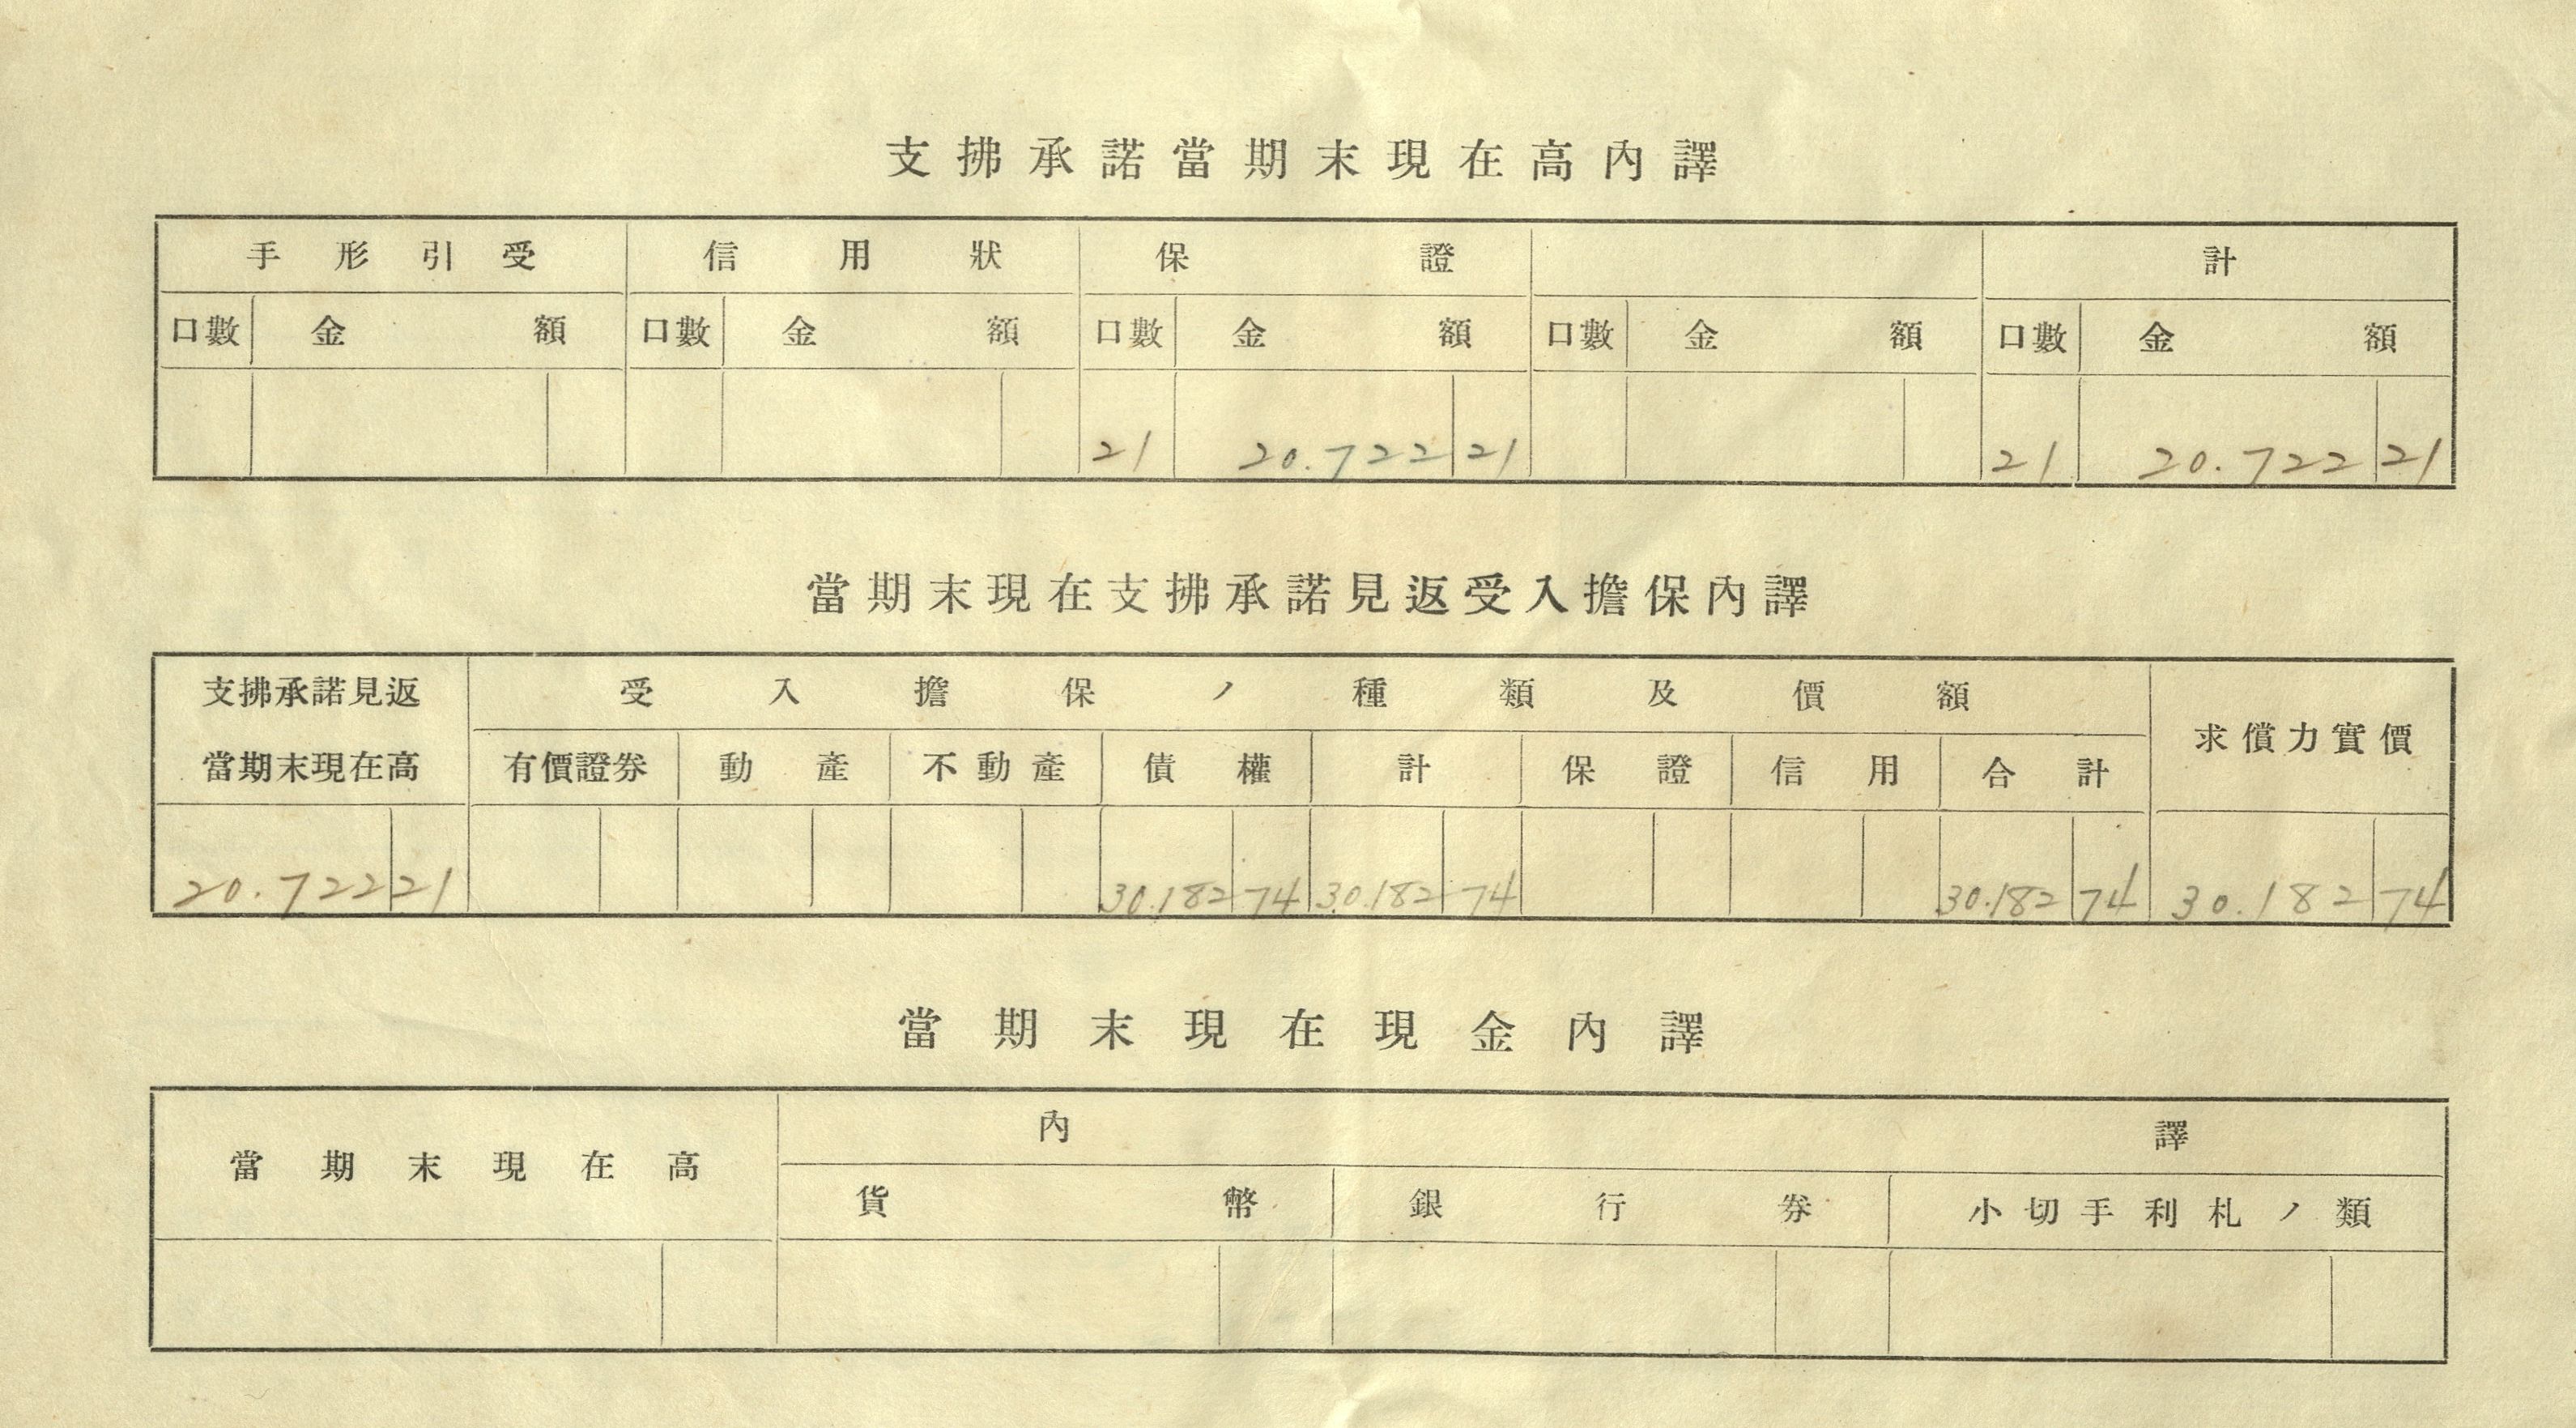 支拂承諾當期末現在高內譯
手形引受 信用狀 保證 計
口數 金額 口數 金額 口數 金額 口數 金額 口數 金額
21 20.722 21 21 20.722 21
當期末現在支拂承諾見返受入擔保內譯
支拂承諾見返 受入擔保ノ種類及價額
當期末現在高 有價證券 動產 不動產 債權 計 保證 信用 合計 求償力實價
20.722 21 30.182 74 30.182 74 30.182 74 30.182 74
當期末現在現金內譯
當期末現在高 內譯
貨幣 銀行券 小切手利札ノ類